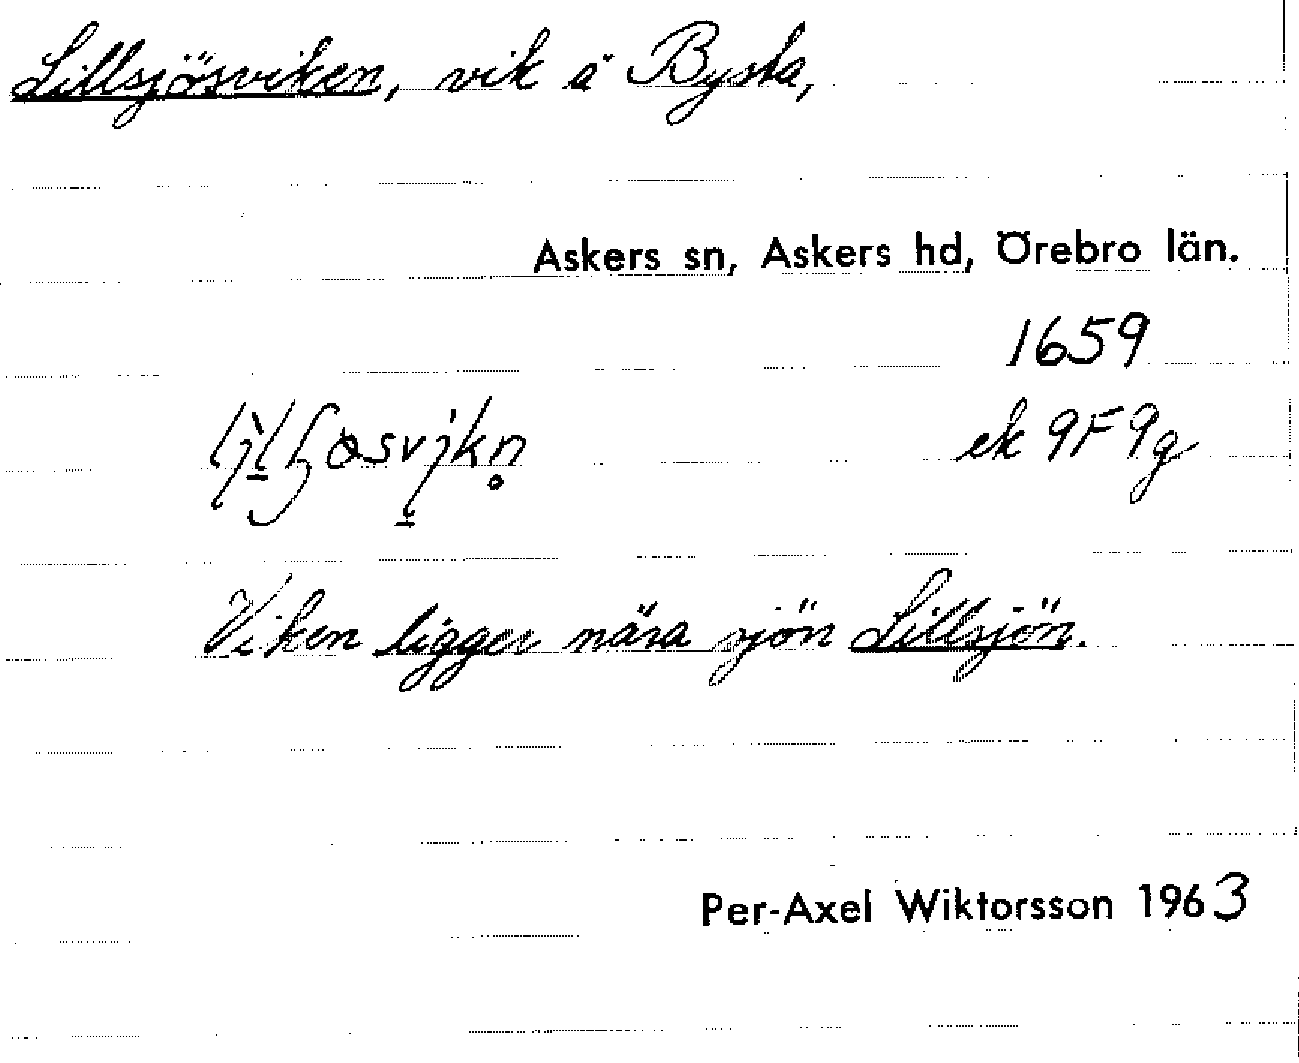 Lillsjösviken, vik å Bysta,
Askers sn, Askers hd, Örebro län.
1659
ek 9F9g
Viken ligger nära sjön Lillsjön.
Per-Axel Wiktorsson 1963